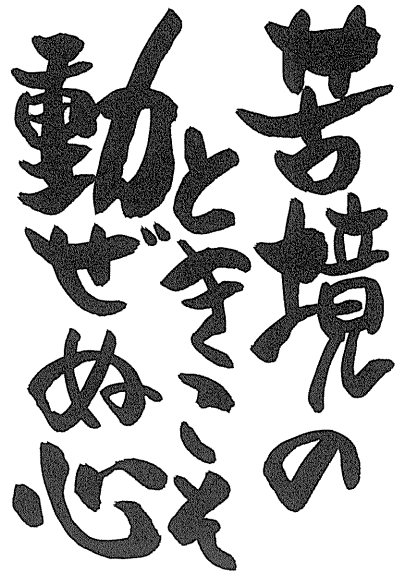 苦境の
ときこそ
動ぜぬ心